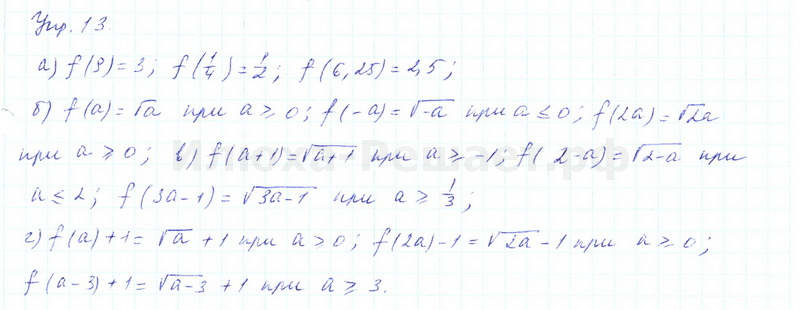 Упр. 13.
а) f(9)=3; f(1/4)=1/2; f(6,25)=2,5;
б) f(a)=√a при a ≥ 0; f(-a)=√-a при a ≤ 0; f(2a)=√2a
при a ≥ 0; в) f(a+1)=√a+1 при a ≥ -1; f(2-a)=√2-a при
a ≤ 2; f(3a-1)=√3a-1 при a ≥ 1/3;
г) f(a)+1=√a+1 при a > 0; f(2a)-1=√2a-1 при a ≥ 0;
f(a-3)+1=√a-3+1 при a ≥ 3.
Илюха-Решает.рф